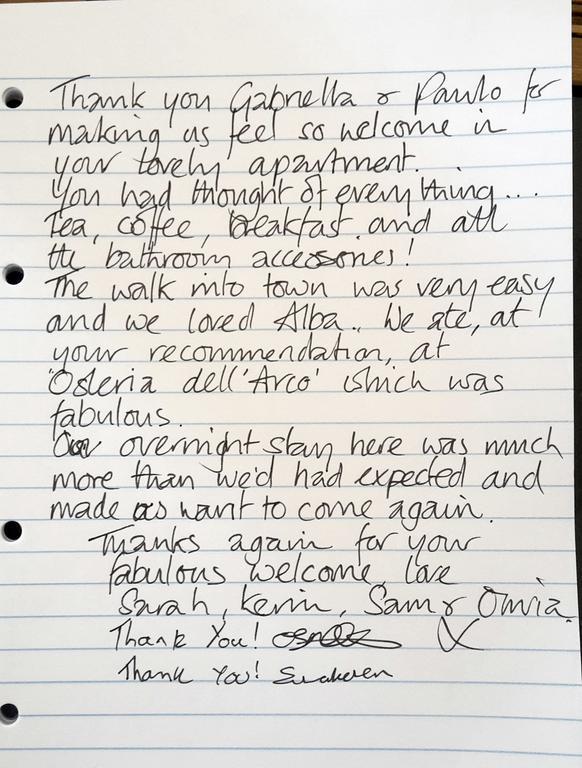 Thank you Gabriella & Paulo for
making us feel so welcome in
your lovely apartment.
You had thought of everything...
Tea, coffee, breakfast and all
the bathroom accessories!
The walk into town was very easy
and we loved Alba. We ate, at
your recommendation, at
'Osteria dell'Arco' which was
fabulous.
Our overnight stay here was much
more than we'd had expected and
made us want to come again.
Thanks again for your
fabulous welcome, love
Sarah, Kevin, Sam &
Thank You! X
Thank You!